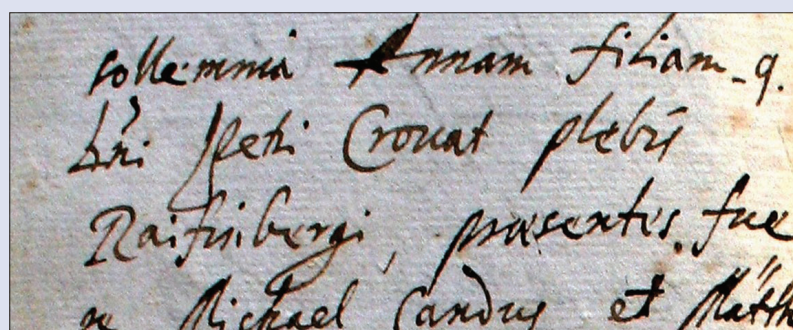 sollemnia Annam filiam q.
Dni Petri Crouat plebis
Raifnibergi, præsentes fue
Michael Candus et Matth